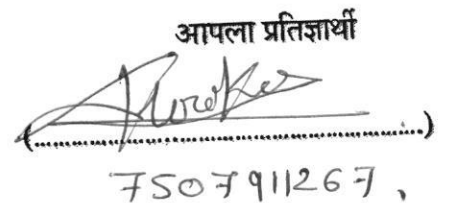 आपला प्रतिज्ञार्थी
(................................................................)
7507911267,